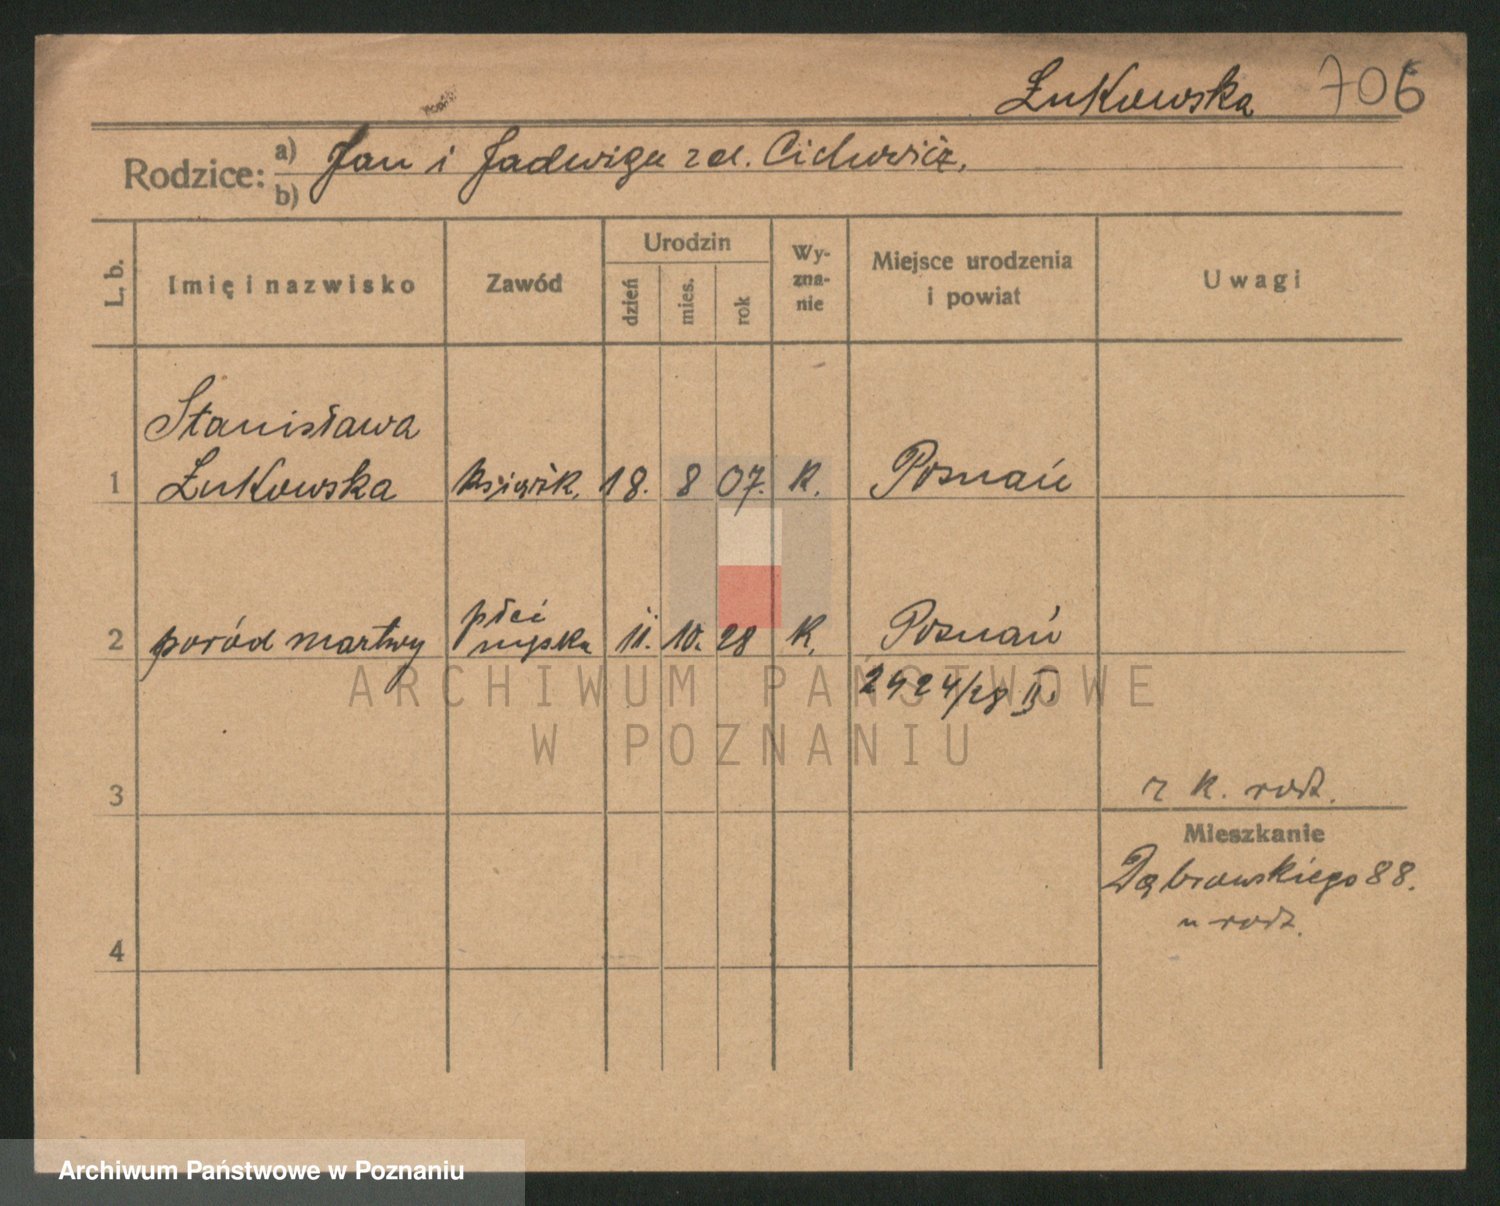 Łukowska 706
Rodzice: a) Jan i Jadwiga zd. Cichowicz.
b)
L. b.
Imię i nazwisko
Zawód
Urodzin
dzień
mies.
rok
Wy-
zna-
nie
Miejsce urodzenia
i powiat
Uwagi
Stanisława
1 Łukowska książk. 18. 8 07. k. Poznań
płci
2 poród martwy męska 11. 10. 28 k. Poznań
2424/28 II.
ARCHIWUM PAŃSTWOWE
W POZNANIU
3
z k. rodz.
Mieszkanie
Dąbrowskiego 88.
u rodz.
4
Archiwum Państwowe w Poznaniu